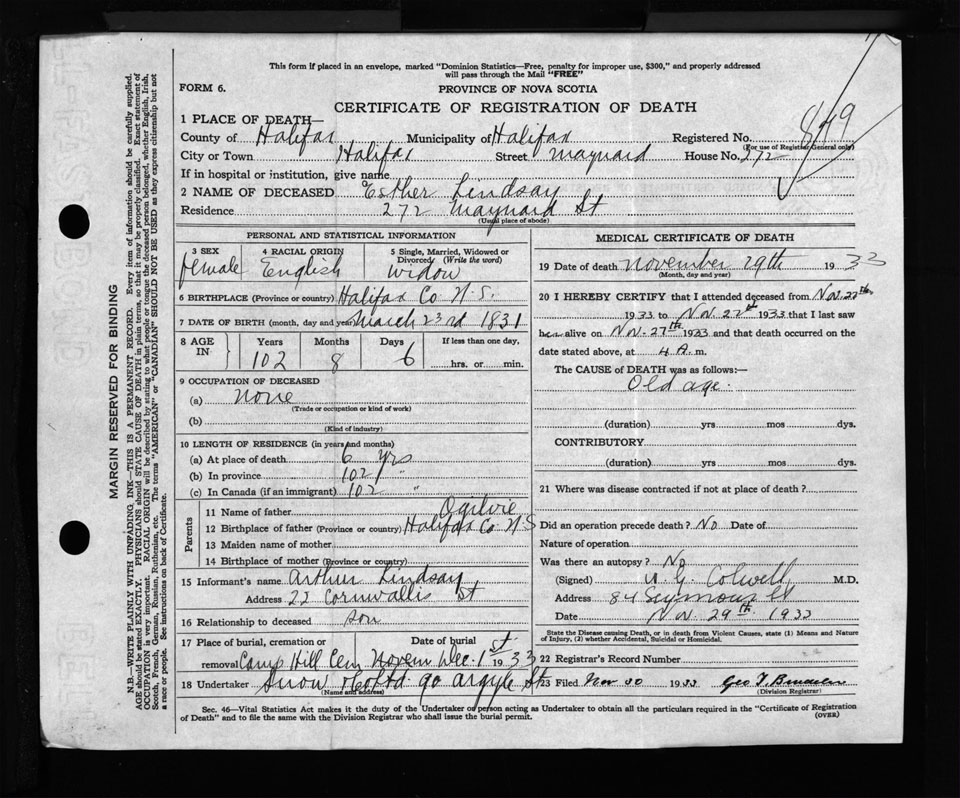 This form if placed in an envelope, marked "Dominion Statistics—Free, penalty for improper use, $300," and properly addressed
will pass through the Mail "FREE"
FORM 6.
PROVINCE OF NOVA SCOTIA
CERTIFICATE OF REGISTRATION OF DEATH
849
1 PLACE OF DEATH—
County of Halifax Municipality of Halifax Registered No.
(For use of Registrar General only)
City or Town Halifax Street Maynard House No. 272
If in hospital or institution, give name
2 NAME OF DECEASED Esther Lindsay
Residence 272 Maynard St
(Usual place of abode)
PERSONAL AND STATISTICAL INFORMATION
3 SEX 4 RACIAL ORIGIN 5 Single, Married, Widowed or
Divorced (Write the word)
female English widow
6 BIRTHPLACE (Province or country) Halifax Co N.S.
7 DATE OF BIRTH (month, day and year) March 23rd 1831
8 AGE IN Years Months Days If less than one day,
102 8 6 hrs. or min.
9 OCCUPATION OF DECEASED
(a) None
(Trade or occupation or kind of work)
(b)
(Kind of industry)
10 LENGTH OF RESIDENCE (in years and months)
(a) At place of death 6 yrs
(b) In province 102 "
(c) In Canada (if an immigrant) 102 "
Parents
11 Name of father Ogilvie
12 Birthplace of father (Province or country) Halifax Co N S
13 Maiden name of mother
14 Birthplace of mother (Province or country)
15 Informant's name Arthur Lindsay
Address 22 Cornwallis St
16 Relationship to deceased son
17 Place of burial, cremation or Date of burial
removal Camp Hill Cem Dec. 1st 1933
18 Undertaker Snow & Co Ltd. 90 Argyle St
(Name and address)
MEDICAL CERTIFICATE OF DEATH
19 Date of death November 29th 1933
(Month, day and year)
20 I HEREBY CERTIFY that I attended deceased from Nov. 27th
1933 to Nov. 27th 1933 that I last saw
her alive on Nov. 27th 1933 and that death occurred on the
date stated above, at 4 A. m.
The CAUSE of DEATH was as follows:—
Old age.
(duration) yrs mos dys.
CONTRIBUTORY
(duration) yrs mos dys.
21 Where was disease contracted if not at place of death?
Did an operation precede death? No Date of
Nature of operation
Was there an autopsy? No
(Signed) Colwell M.D.
Address 84 Seymour St
Date Nov. 29th 1933
State the Disease causing Death, or in death from Violent Causes, state (1) Means and Nature
of Injury, (2) whether Accidental, Suicidal or Homicidal.
22 Registrar's Record Number
23 Filed Nov 30 1933 Geo
(Division Registrar)
Sec. 46—Vital Statistics Act makes it the duty of the Undertaker or person acting as Undertaker to obtain all the particulars required in the "Certificate of Registration
of Death" and to file the same with the Division Registrar who shall issue the burial permit.
(OVER)
MARGIN RESERVED FOR BINDING
N.B.—WRITE PLAINLY WITH UNFADING INK—THIS IS A PERMANENT RECORD. Every item of information should be carefully supplied.
AGE should be stated EXACTLY. PHYSICIANS should STATE CAUSE OF DEATH in plain terms, so that it may be properly classified. Exact statement of
OCCUPATION is very important. RACIAL ORIGIN will be described by stating to what people or tongue the deceased person belonged, whether English, Irish,
Scotch, French, German, Russian, Ruthenian, etc. The terms "AMERICAN" or "CANADIAN" SHOULD NOT BE USED as they express citizenship but not
a race or people. See instructions on back of Certificate.